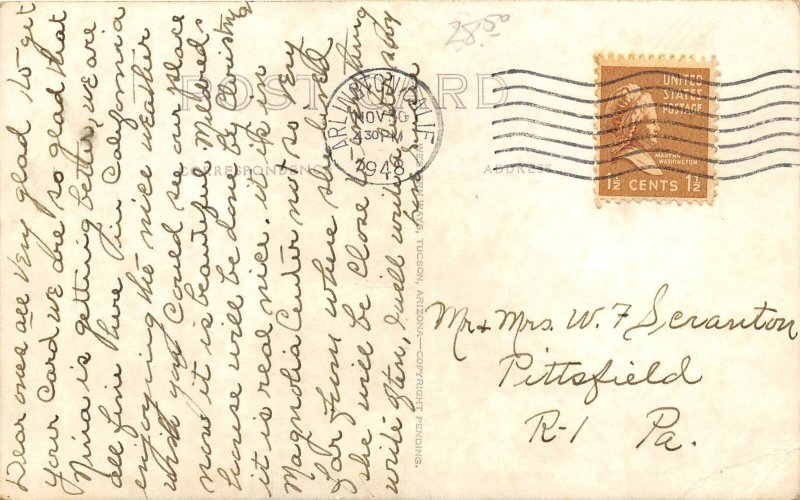 28.50
POST CARD
ARLINGTON, CALIF.
NOV 30
4 30 PM
1948
UNITED
STATES
POSTAGE
MARTHA
WASHINGTON
1½ CENTS 1½
CORRESPONDENCE
ADDRESS
Dear ones all Very glad to get
your Card we are so glad that
Nina is getting better, we are
all fine here in California
enjoying the nice weather
wish you Could see our place
now it is beautiful Mildreds
house will be done by Christmas
it is real nice. it is in
Magnolia Center not so very
far from where she lived
she will be Close to everything
write often, I will write
WESTERN WAYS, TUCSON, ARIZONA—COPYRIGHT PENDING.
Mr + Mrs. W. F Scranton
Pittsfield
R-1 Pa.